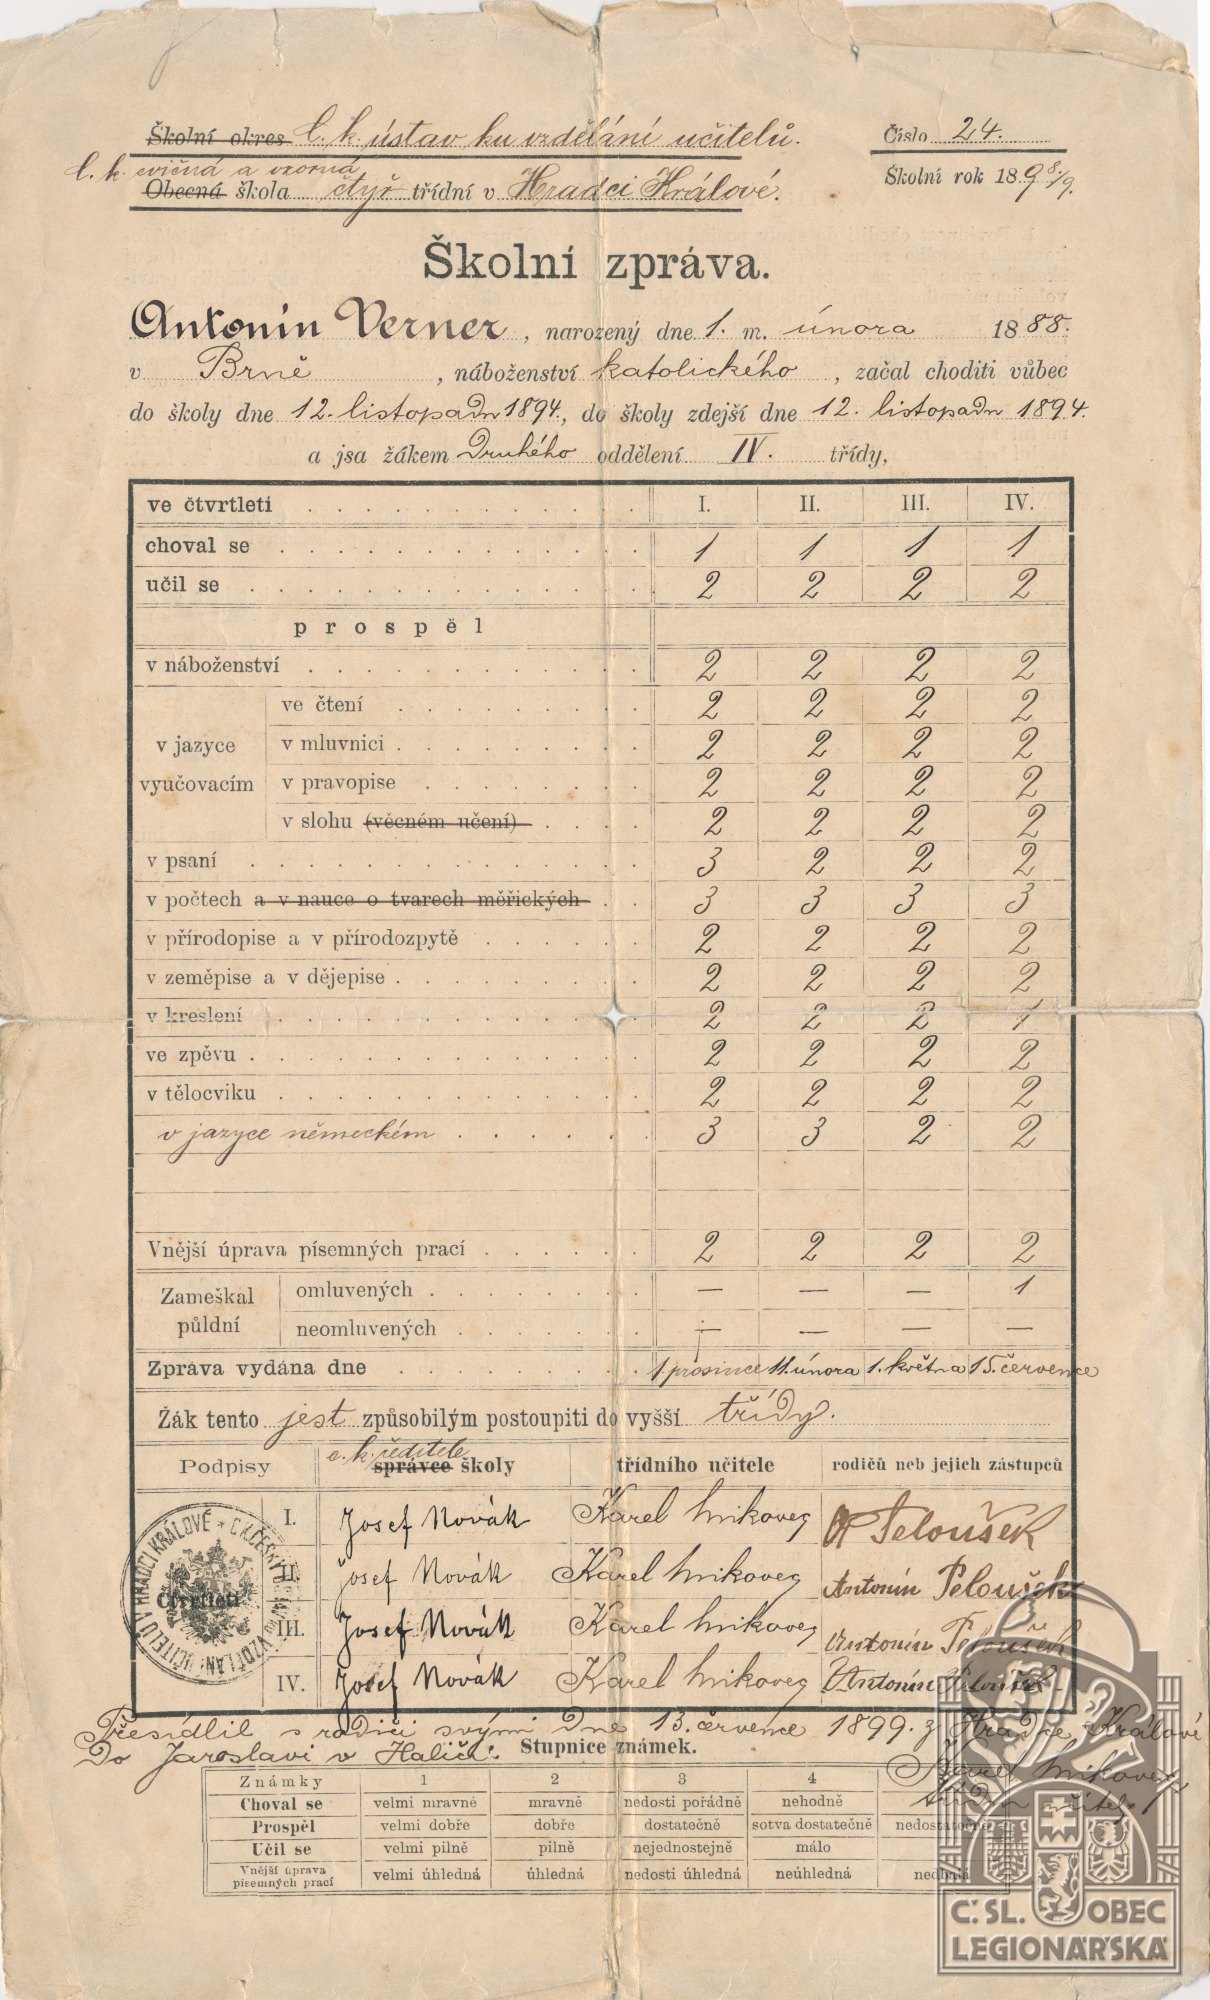 Školní okres C. k. ústav ku vzdělání učitelů. Číslo 24.
C. k. cvičná a vzorná Školní rok 1898/9.
Obecná škola čtyř třídní v Hradci Králové.
Školní zpráva.
Antonín Verner, narozený dne 1. m. února 1888.
v Brně, náboženství katolického, začal choditi vůbec
do školy dne 12. listopadu 1894, do školy zdejší dne 12. listopadu 1894.
a jsa žákem Druhého oddělení IV. třídy,
ve čtvrtletí I. II. III. IV.
choval se 1 1 1 1
učil se 2 2 2 2
prospěl
v náboženství 2 2 2 2
v jazyce vyučovacím
ve čtení 2 2 2 2
v mluvnici 2 2 2 2
v pravopise 2 2 2 2
v slohu (věcném učení) 2 2 2 2
v psaní 3 2 2 2
v počtech a v nauce o tvarech měřických 3 3 3 3
v přírodopise a v přírodozpytě 2 2 2 2
v zeměpise a v dějepise 2 2 2 2
v kreslení 2 2 2 1
ve zpěvu 2 2 2 2
v tělocviku 2 2 2 2
v jazyce německém 3 3 2 2
Vnější úprava písemných prací 2 2 2 2
Zameškal půldní
omluvených — — — 1
neomluvených — — — —
Zpráva vydána dne 1 prosince 11. února 1. května 15. července
Žák tento jest způsobilým postoupiti do vyšší třídy.
c. k. ředitele
Podpisy správce školy třídního učitele rodičů neb jejich zástupců
Čtvrtletí
I. Josef Novák Karel
II. Josef Novák Karel Antonín Peloušek
III. Josef Novák Karel Antonín Peloušek
IV. Josef Novák Karel Antonín Peloušek
Přesídlil s rodiči svými dne 13. července 1899. z Hradce Králové
do Jaroslavi v Haliči.
Karel
třídní učitel
Stupnice známek.
Známky 1 2 3 4
Choval se velmi mravně mravně nedosti pořádně nehodně
Prospěl velmi dobře dobře dostatečně sotva dostatečně nedostatečně
Učil se velmi pilně pilně nejednostejně málo
Vnější úprava písemných prací velmi úhledná úhledná nedosti úhledná neúhledná nedbalá
Č. SL. OBEC
LEGIONÁŘSKÁ